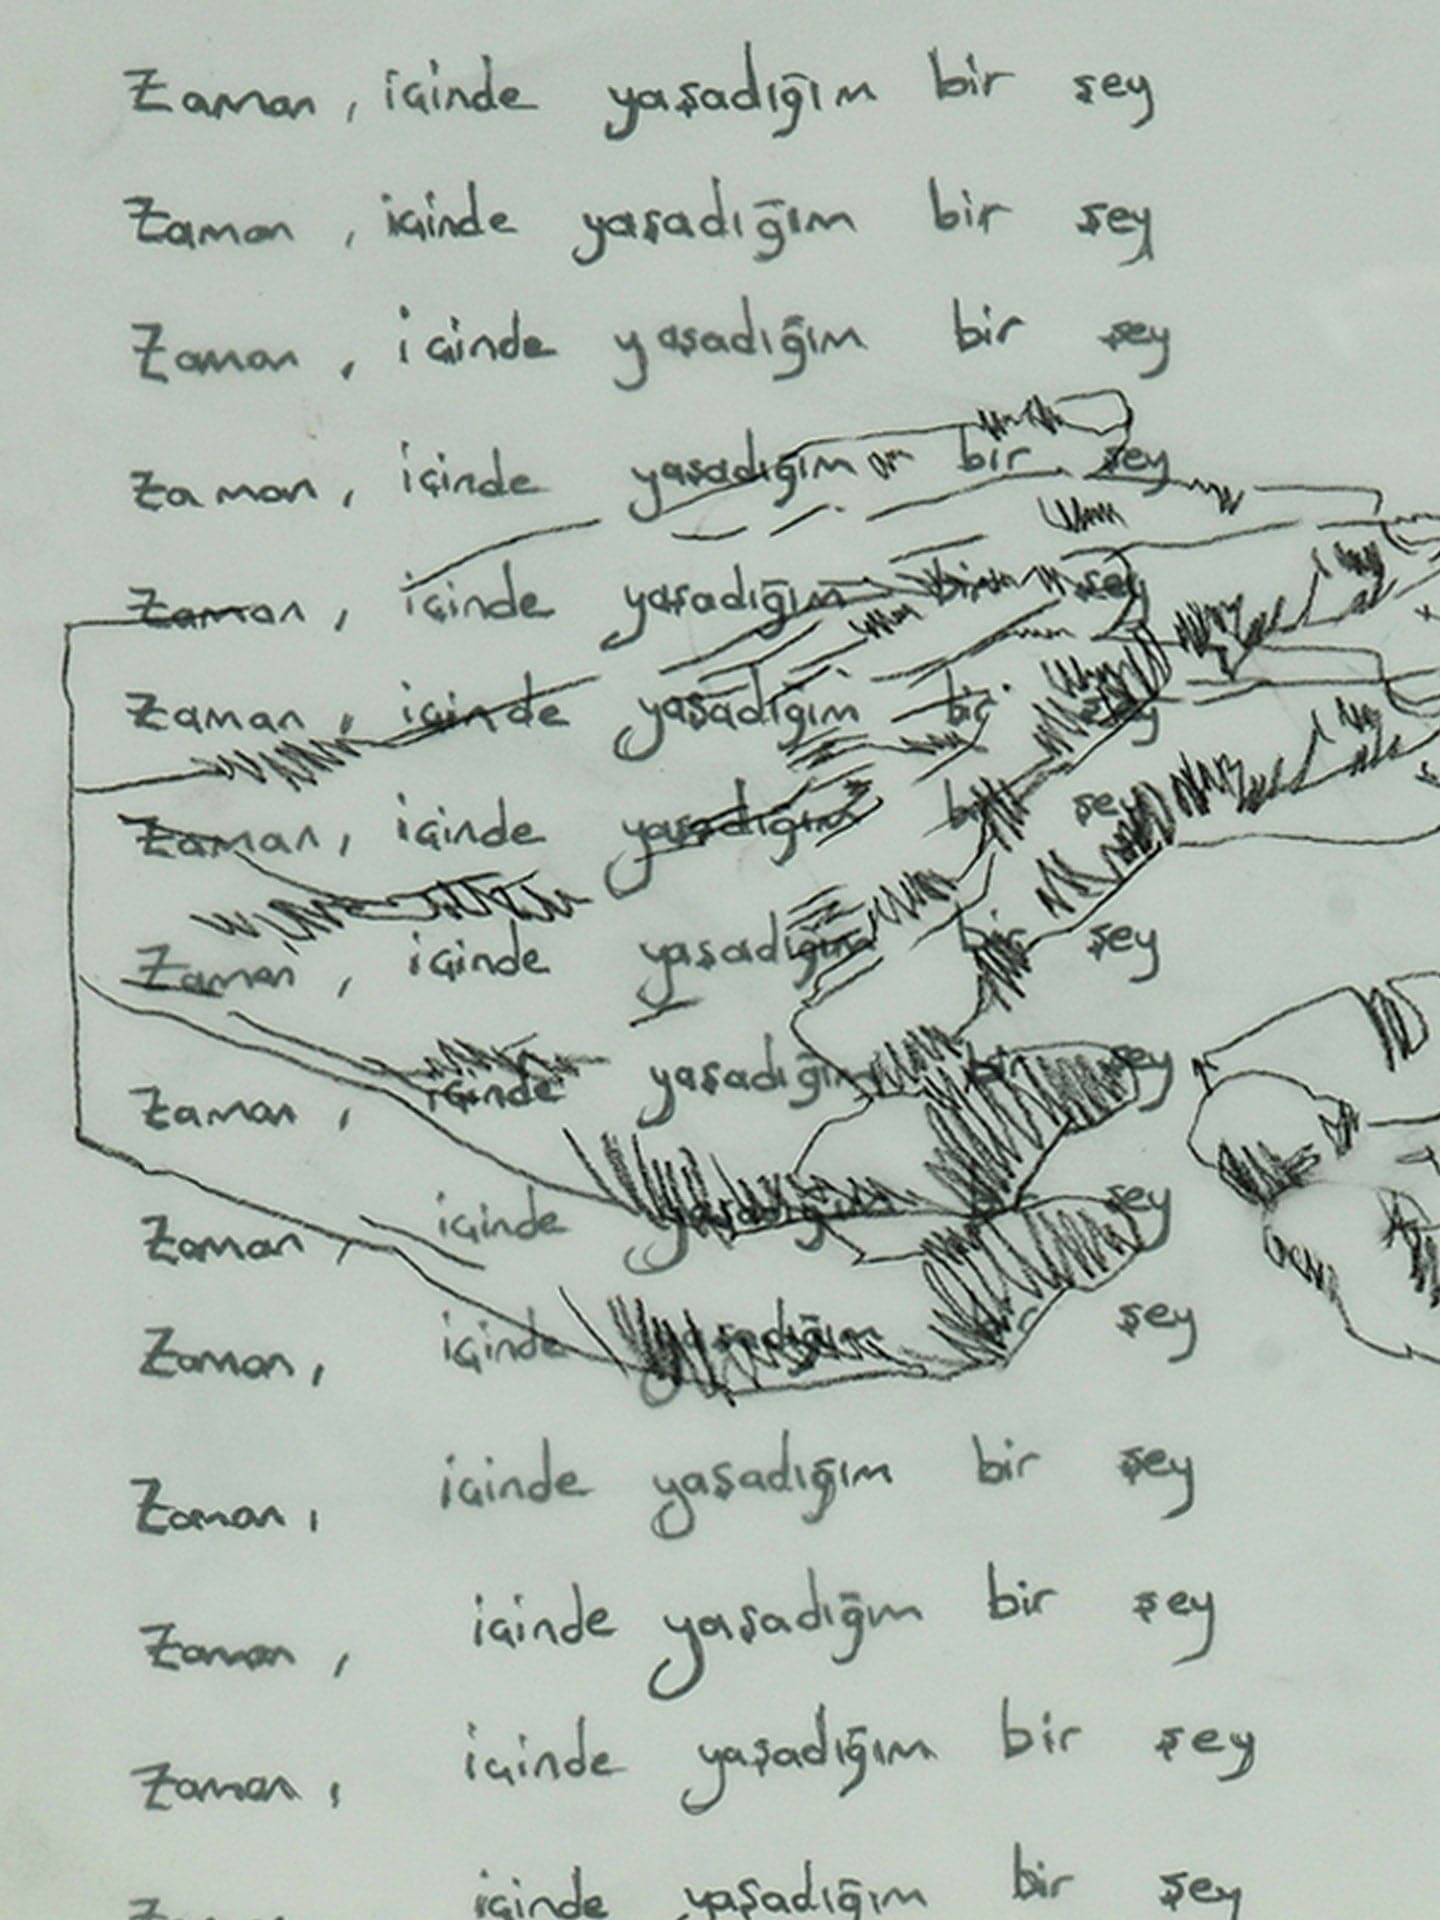 Zaman, içinde yaşadığım bir şey
Zaman, içinde yaşadığım bir şey
Zaman, içinde yaşadığım bir şey
Zaman, içinde yaşadığım bir şey
Zaman, içinde yaşadığım bir şey
Zaman, içinde yaşadığım bir şey
Zaman, içinde yaşadığım bir şey
Zaman, içinde yaşadığım bir şey
Zaman, içinde yaşadığım bir şey
Zaman, içinde yaşadığım bir şey
Zaman, içinde yaşadığım bir şey
Zaman, içinde yaşadığım bir şey
Zaman, içinde yaşadığım bir şey
Zaman, içinde yaşadığım bir şey
içinde yaşadığım bir şey